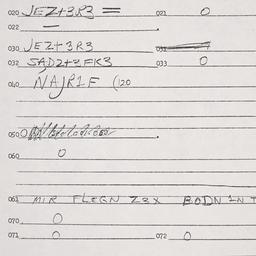 020 JEZ+3R3 = 021 0
022 —
030 JEZ+3R3 031
032 SAD2+2FK3 033 0
040 NAJR1F (120
050
060 0
061 MIR FLEGN Z2X BADN 1N T
070 0
071 0 072 0